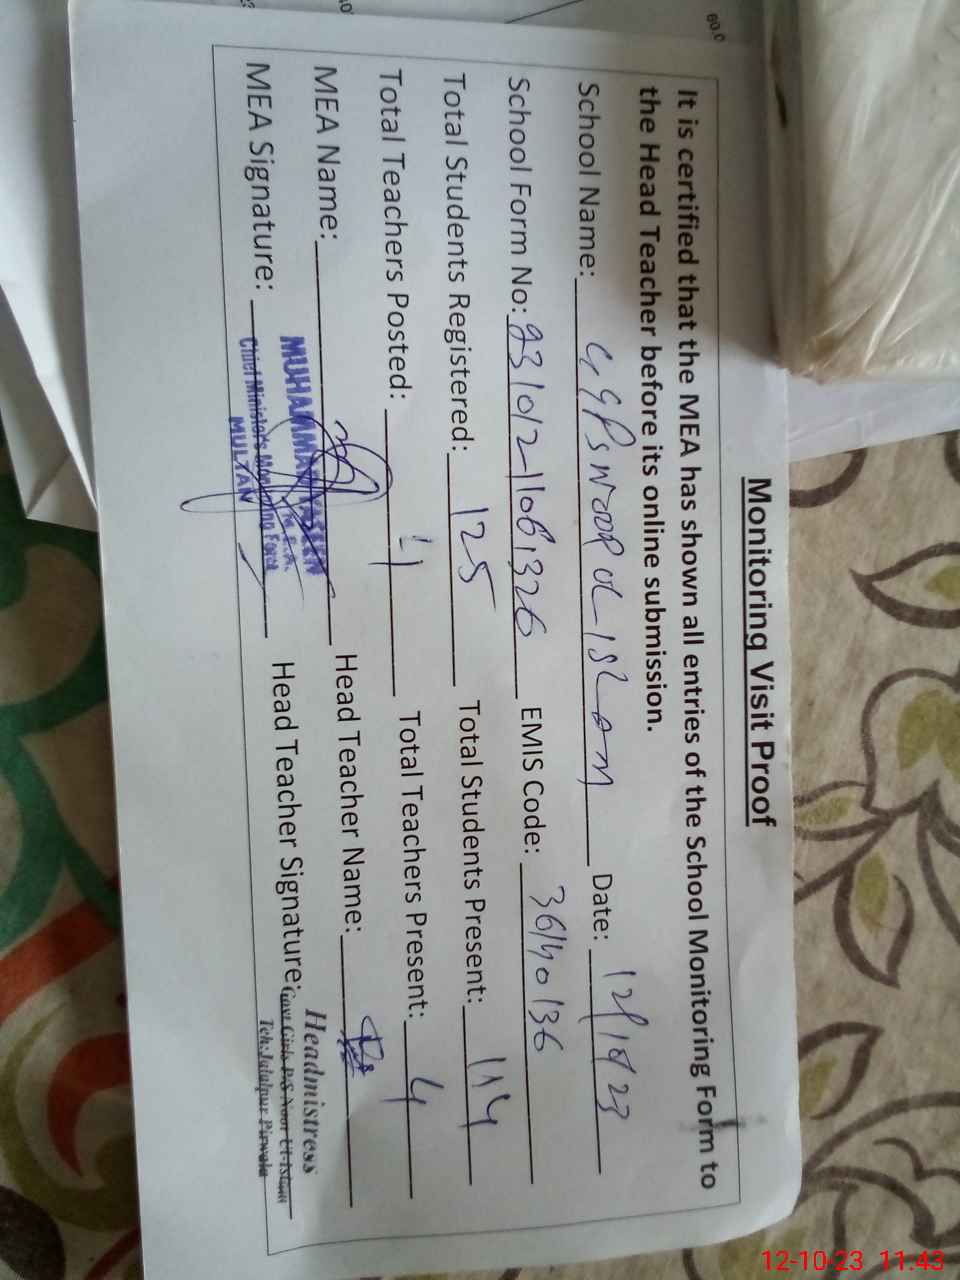 Monitoring Visit Proof
It is certified that the MEA has shown all entries of the School Monitoring Form to
the Head Teacher before its online submission.
School Name: GGPS NOOR UL ISLAM Date: 12/10/23
School Form No: EMIS Code: 36140136
Total Students Registered: 125 Total Students Present: 114
Total Teachers Posted: 4 Total Teachers Present: 4
MEA Name: MUHAMMAD Head Teacher Name:
M.E.A.
MEA Signature: Chief Minister's Monitoring Force Head Teacher Signature:
MULTAN
Headmistress
Govt Girls P/S Noor Ul-Islam
Teh: Jalalpur Pirwala
60.0
12-10-23 11:43